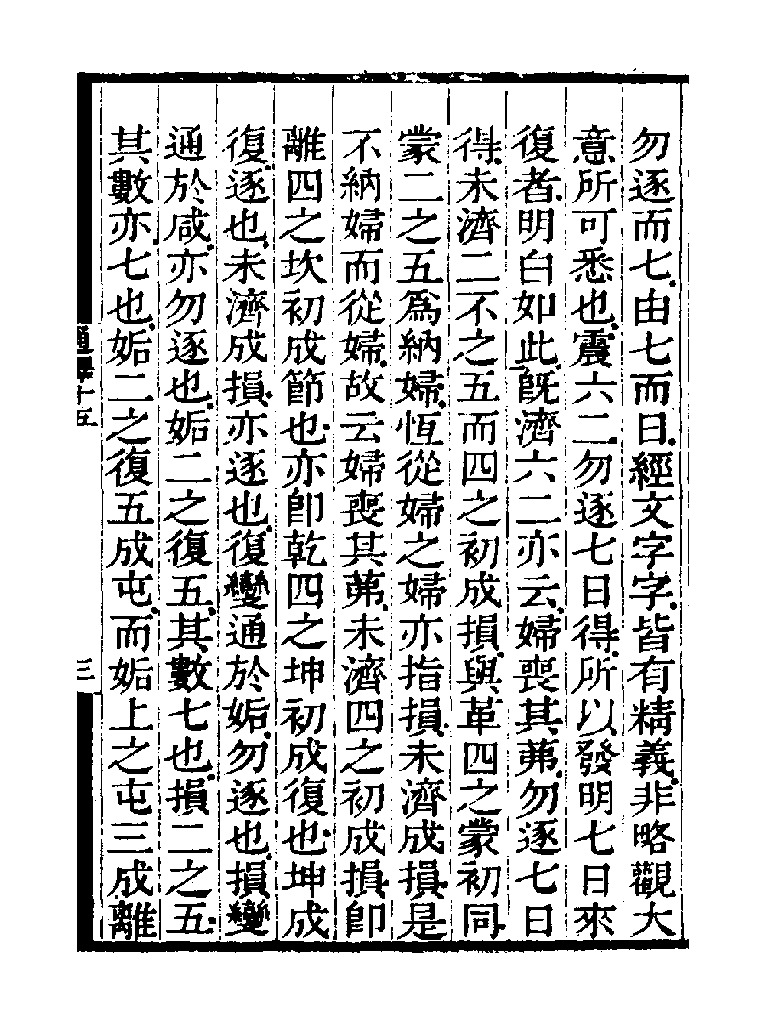 勿逐而七由七而日經文字字皆有精義非略觀大
意所可悉也震六二勿逐七日得所以發明七日來
復者明白如此既濟六二亦云婦喪其茀勿逐七日
得未濟二不之五而四之初成損與革四之蒙初同
蒙二之五爲納婦恆從婦之婦亦指損未濟成損是
不納婦而從婦故云婦喪其茀未濟四之初成損卽
離四之坎初成節也亦卽乾四之坤初成復也坤成
復逐也未濟成損亦逐也復變通於姤勿逐也損變
通於咸亦勿逐也姤二之復五其數七也損二之五
其數亦七也姤二之復五成屯而姤上之屯三成離
通釋十五
三